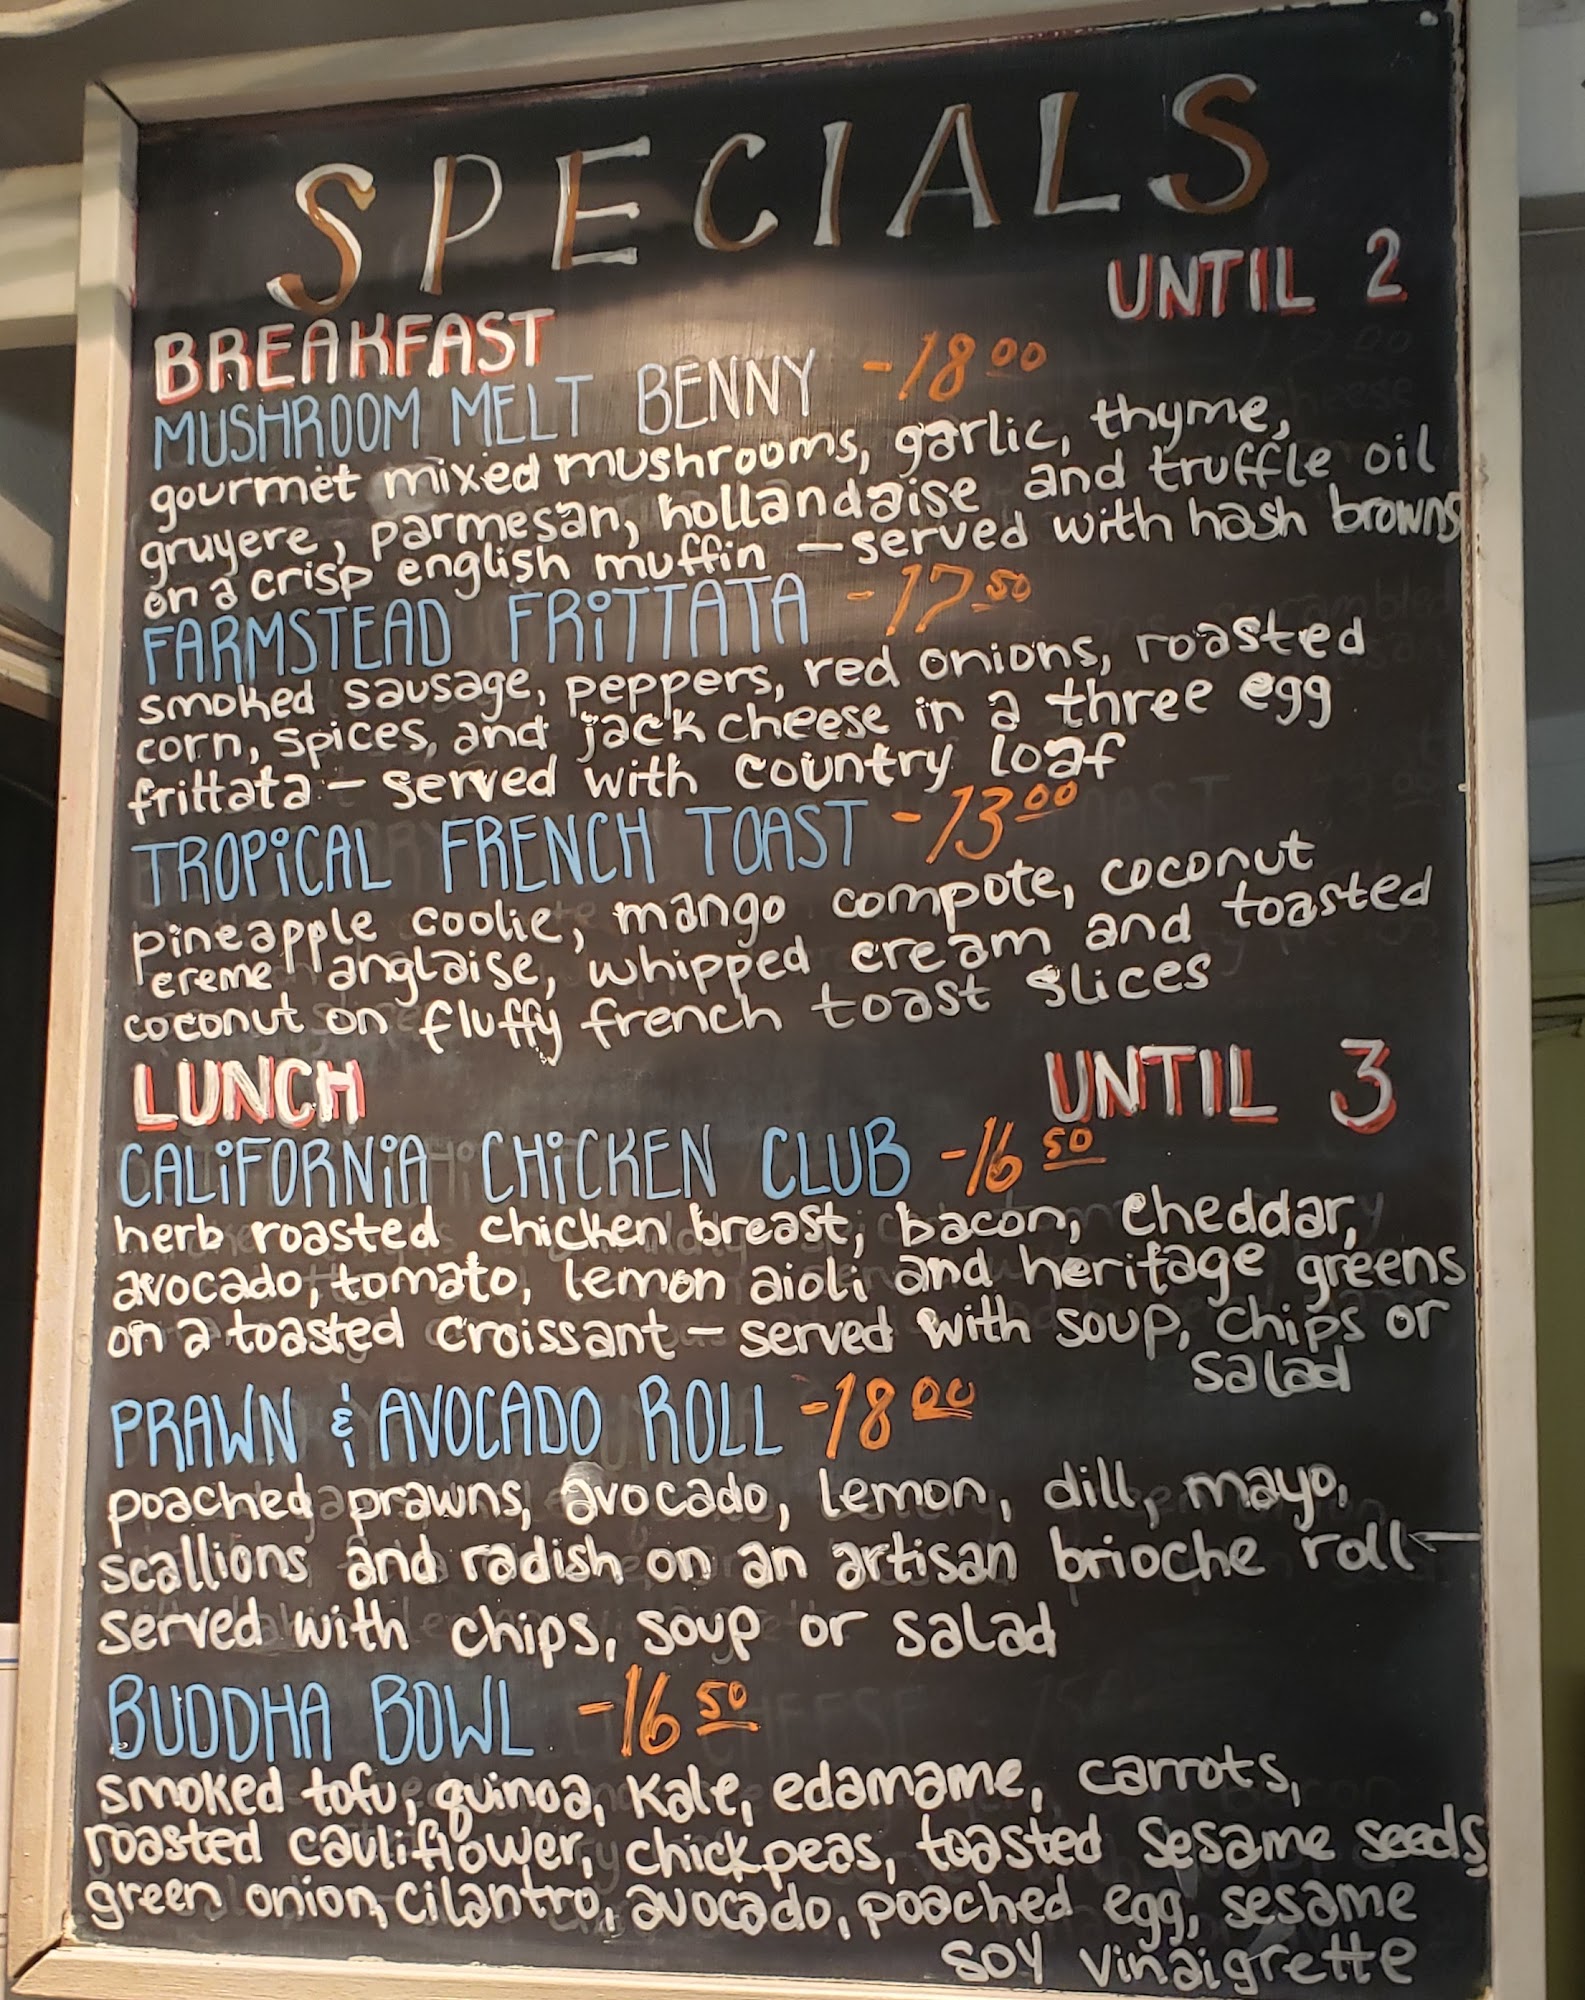 SPECIALS
BREAKFAST UNTIL 2
MUSHROOM MELT BENNY - 18 00
gourmet mixed mushrooms, garlic, thyme,
gruyere, parmesan, hollandaise and truffle oil
on a crisp english muffin - served with hash browns
FARMSTEAD FRiTTATA - 17 50
smoked sausage, peppers, red onions, roasted
corn, spices, and jack cheese in a three egg
frittata - served with country loaf
TROPiCAL FRENCH TOAST - 13 00
pineapple coolie, mango compote, coconut
creme anglaise, whipped cream and toasted
coconut on fluffy french toast slices
LUNCH UNTIL 3
CALiFORNiA CHiCKEN CLUB - 16 50
herb roasted chicken breast, bacon, cheddar,
avocado, tomato, lemon aioli and heritage greens
on a toasted croissant - served with soup, chips or
salad
PRAWN & AVOCADO ROLL - 18 00
poached prawns, avocado, lemon, dill, mayo,
scallions and radish on an artisan brioche roll
served with chips, soup or salad
BUDDHA BOWL - 16 50
smoked tofu, quinoa, kale, edamame, carrots,
roasted cauliflower, chickpeas, toasted sesame seeds,
green onion, cilantro, avocado, poached egg, sesame
soy vinaigrette